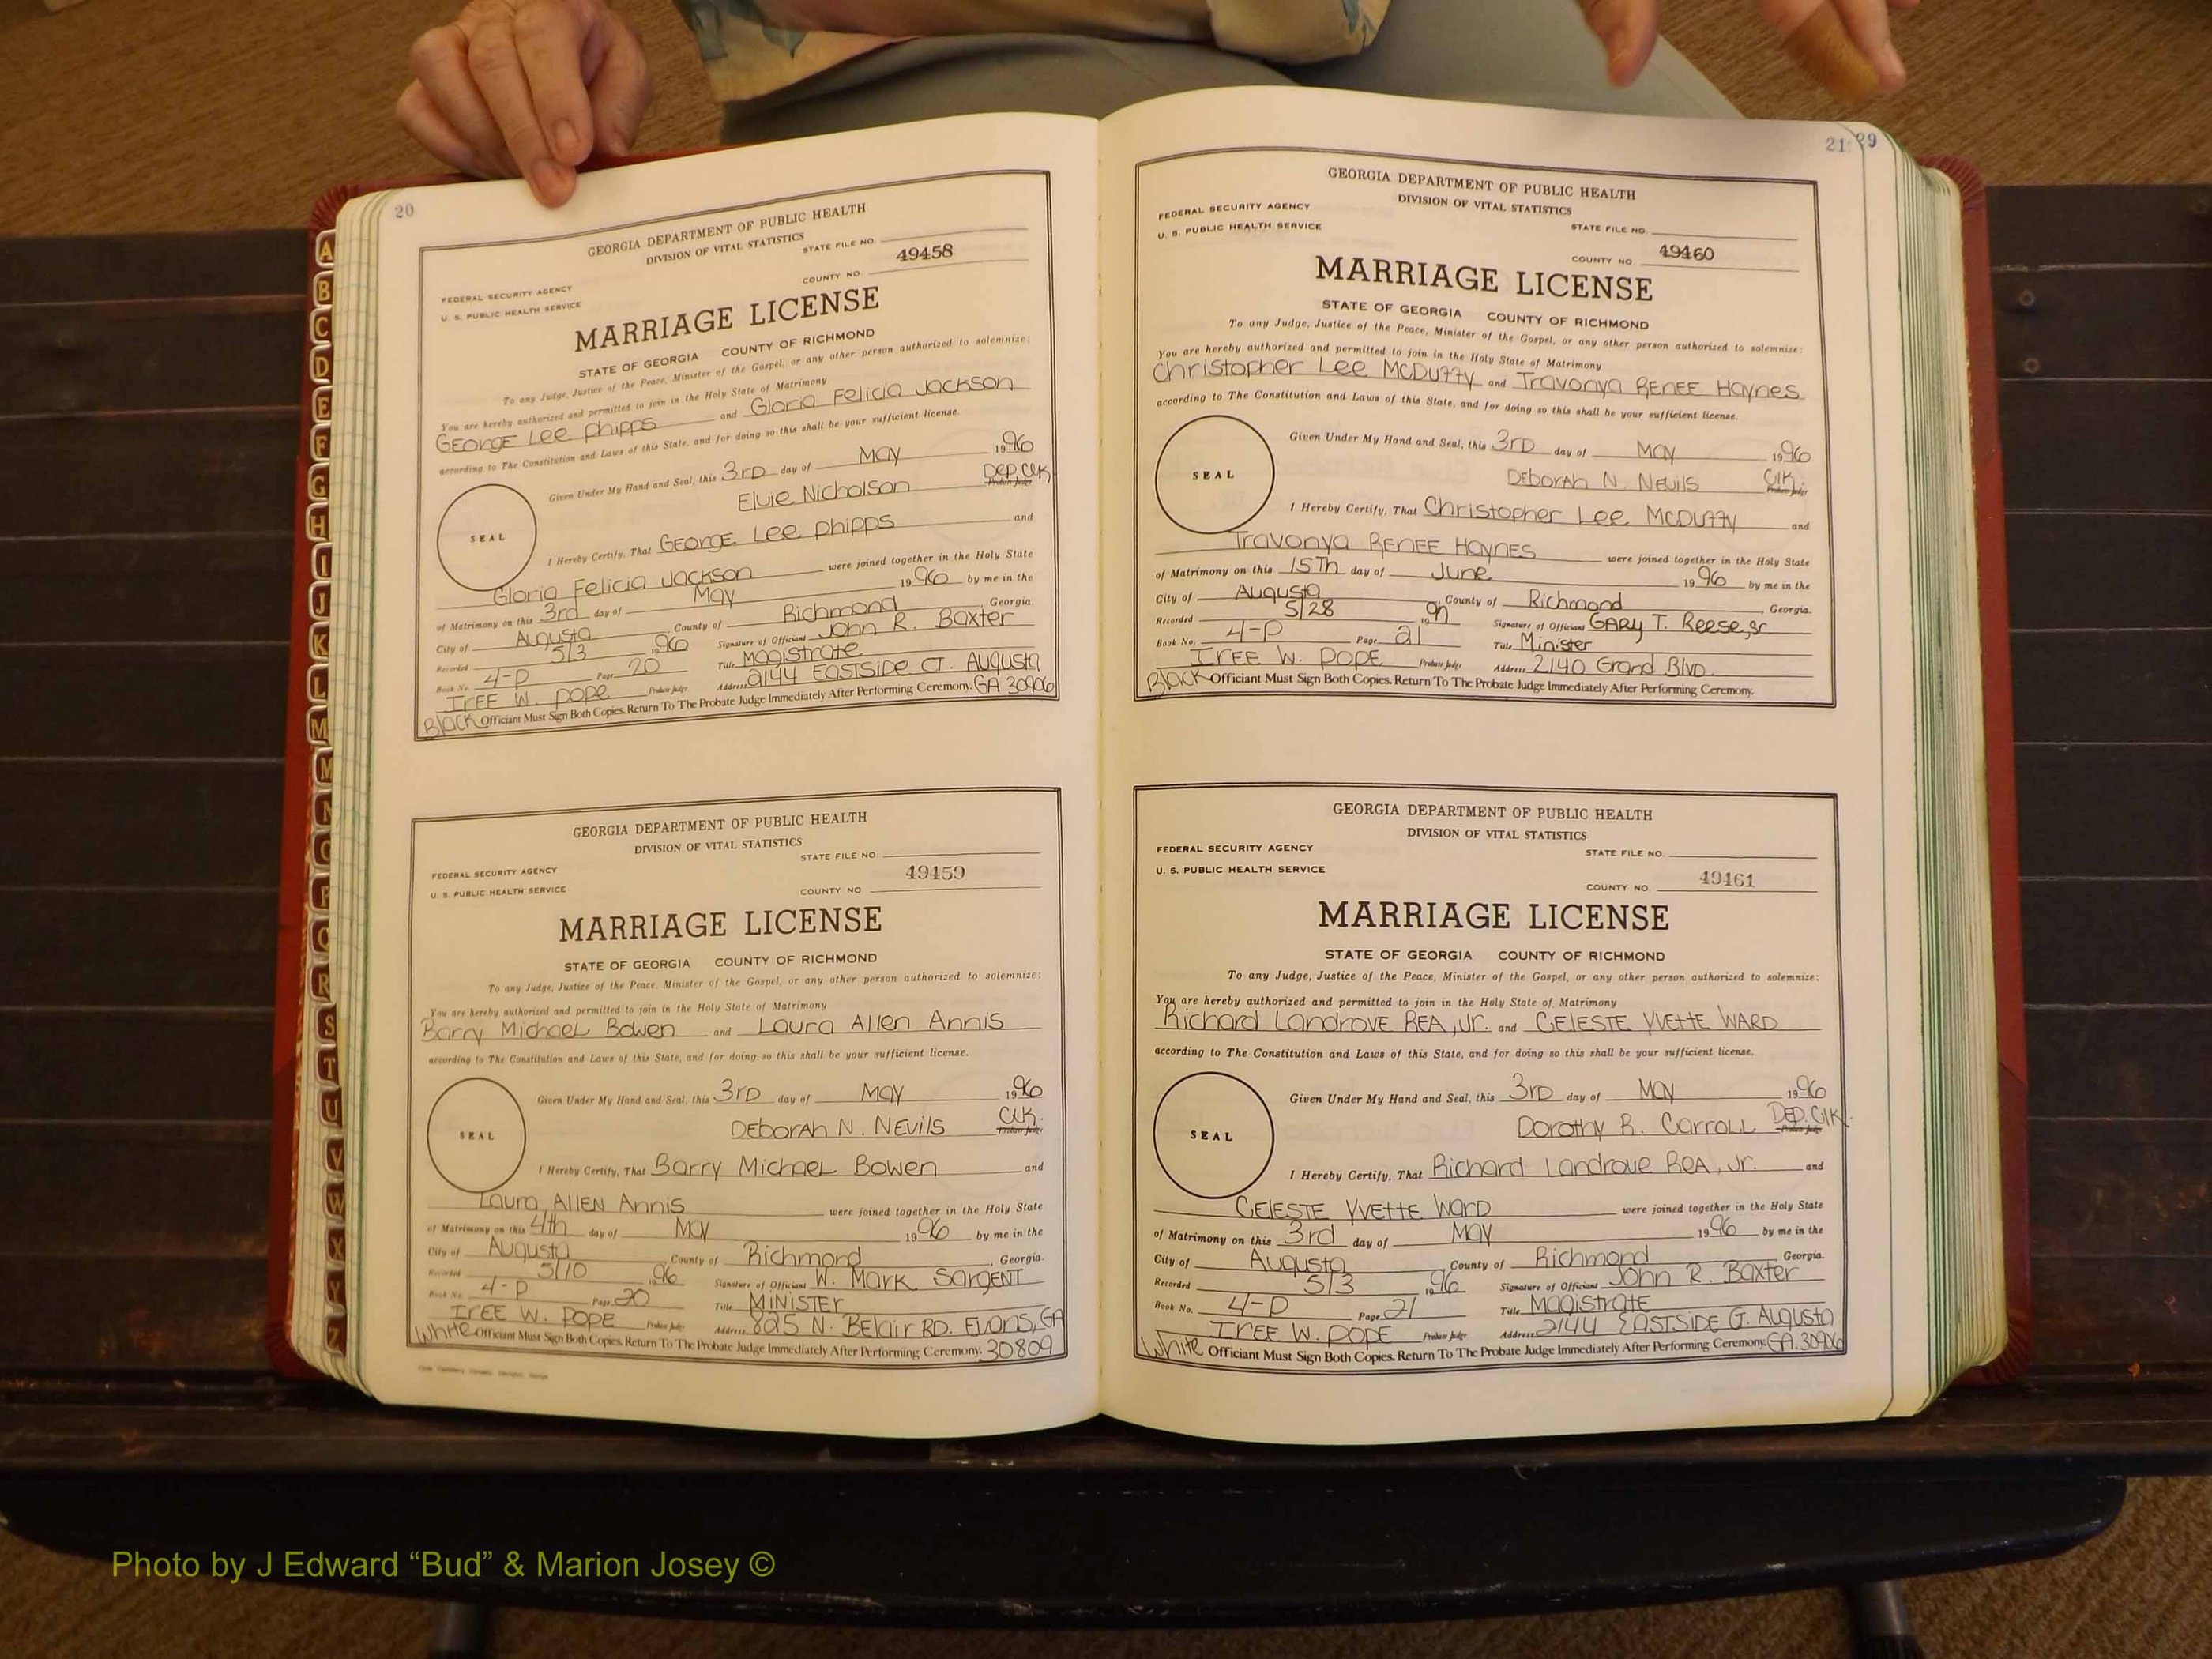 20
GEORGIA DEPARTMENT OF PUBLIC HEALTH
DIVISION OF VITAL STATISTICS
STATE FILE NO.
49458
COUNTY NO.
FEDERAL SECURITY AGENCY
U. S. PUBLIC HEALTH SERVICE
MARRIAGE LICENSE
STATE OF GEORGIA COUNTY OF RICHMOND
To any Judge, Justice of the Peace, Minister of the Gospel, or any other person authorized to solemnize:
You are hereby authorized and permitted to join in the Holy State of Matrimony
George Lee Phipps and Gloria Felicia Jackson
according to The Constitution and Laws of this State, and for doing so this shall be your sufficient license.
Given Under My Hand and Seal, this 3rd day of May 1996
Elvie Nicholson Dep. Clk. Probate Judge
SEAL
I Hereby Certify, That George Lee Phipps and
Gloria Felicia Jackson were joined together in the Holy State
of Matrimony on this 3rd day of May 1996 by me in the
City of Augusta County of Richmond Georgia.
Recorded 5/3 1996 Signature of Officiant John R. Baxter
Book No. 4-P Page 20 Title Magistrate
Iree W. Pope Probate Judge Address 2144 Eastside Ct. Augusta
Black Officiant Must Sign Both Copies. Return To The Probate Judge Immediately After Performing Ceremony. GA 30906
GEORGIA DEPARTMENT OF PUBLIC HEALTH
DIVISION OF VITAL STATISTICS
STATE FILE NO.
FEDERAL SECURITY AGENCY
49459
U. S. PUBLIC HEALTH SERVICE
COUNTY NO
MARRIAGE LICENSE
STATE OF GEORGIA COUNTY OF RICHMOND
To any Judge, Justice of the Peace, Minister of the Gospel, or any other person authorized to solemnize:
You are hereby authorized and permitted to join in the Holy State of Matrimony
Barry Michael Bowen and Laura Allen Annis
according to The Constitution and Laws of this State, and for doing so this shall be your sufficient license.
Given Under My Hand and Seal, this 3rd day of May 1996
Deborah N. Nevils Clk. Probate Judge
SEAL
I Hereby Certify, That Barry Michael Bowen and
Laura Allen Annis were joined together in the Holy State
of Matrimony on this 4th day of May 1996 by me in the
City of Augusta County of Richmond Georgia.
Recorded 5/10 1996 Signature of Officiant W. Mark Sargent
Book No. 4-P Page 20 Title Minister
Iree W. Pope Probate Judge Address 825 N. Belair Rd. Evans, GA
White Officiant Must Sign Both Copies. Return To The Probate Judge Immediately After Performing Ceremony. 30809
21 29
GEORGIA DEPARTMENT OF PUBLIC HEALTH
DIVISION OF VITAL STATISTICS
FEDERAL SECURITY AGENCY
U. S. PUBLIC HEALTH SERVICE
STATE FILE NO.
49460
COUNTY NO
MARRIAGE LICENSE
STATE OF GEORGIA COUNTY OF RICHMOND
To any Judge, Justice of the Peace, Minister of the Gospel, or any other person authorized to solemnize:
You are hereby authorized and permitted to join in the Holy State of Matrimony
Christopher Lee McDuffy and Travonya Renee Haynes
according to The Constitution and Laws of this State, and for doing so this shall be your sufficient license.
Given Under My Hand and Seal, this 3rd day of May 1996
Deborah N. Nevils Clk. Probate Judge
SEAL
I Hereby Certify, That Christopher Lee McDuffy and
Travonya Renee Haynes were joined together in the Holy State
of Matrimony on this 15th day of June 1996 by me in the
City of Augusta County of Richmond Georgia.
Recorded 5/28 1997 Signature of Officiant Gary T. Reese, Sr
Book No. 4-P Page 21 Title Minister
Iree W. Pope Probate Judge Address 2140 Grand Blvd.
Black Officiant Must Sign Both Copies. Return To The Probate Judge Immediately After Performing Ceremony.
GEORGIA DEPARTMENT OF PUBLIC HEALTH
DIVISION OF VITAL STATISTICS
FEDERAL SECURITY AGENCY
STATE FILE NO.
U. S. PUBLIC HEALTH SERVICE
49461
COUNTY NO.
MARRIAGE LICENSE
STATE OF GEORGIA COUNTY OF RICHMOND
To any Judge, Justice of the Peace, Minister of the Gospel, or any other person authorized to solemnize:
You are hereby authorized and permitted to join in the Holy State of Matrimony
Richard Landrove Rea, Jr. and Celeste Yvette Ward
according to The Constitution and Laws of this State, and for doing so this shall be your sufficient license.
Given Under My Hand and Seal, this 3rd day of May 1996
Dorothy R. Carroll Dep. Clk. Probate Judge
SEAL
I Hereby Certify, That Richard Landrove Rea, Jr. and
Celeste Yvette Ward were joined together in the Holy State
of Matrimony on this 3rd day of May 1996 by me in the
City of Augusta County of Richmond Georgia.
Recorded 5/3 1996 Signature of Officiant John R. Baxter
Book No. 4-P Page 21 Title Magistrate
Iree W. Pope Probate Judge Address 2144 Eastside Ct. Augusta
White Officiant Must Sign Both Copies. Return To The Probate Judge Immediately After Performing Ceremony. GA. 30906
A
B
C
D
E
F
G
H
I
J
K
L
M
M
N
O
P
Q
R
S
T
U
V
W
X
Y
Z
Photo by J Edward “Bud” & Marion Josey ©